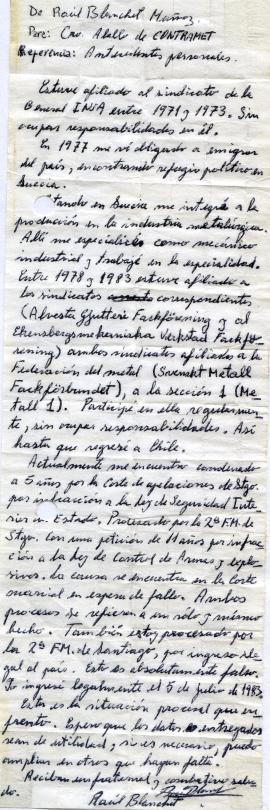 De Raúl Blanchet Muñoz.
Para: Cro. Abello de CONTRAMET
Referencia: Antecedentes personales.
Estuve afiliado al sindicato de la
General INSA entre 1971 y 1973. Sin
ocupar responsabilidades en él.
En 1977 me vi obligado a emigrar
del país, encontrando refugio político en
Suecia.
Estando en Suecia me integré a la
producción en la industria metalúrgica.
Allí me especialicé como mecánico
industrial y trabajé en la especialidad.
Entre 1978 y 1983 estuve afiliado a
los sindicatos correspondientes
(Alvesta Gjutteri Fackförening y al
Ekensbergsmekaniska Verkstad Fackfö-
rening) ambos sindicatos afiliados a la
Federación del metal (Svenskt Metall
Fackförbundet), a la sección 1 (Me-
tall 1). Participé en ella regularmen-
te, sin ocupar responsabilidades. Así
hasta que regresé a Chile.
Actualmente me encuentro condenado
a 5 años por la Corte de apelaciones de Stgo.
por infracción a la Ley de Seguridad Inte
rior del Estado. Procesado por la 2ª F.M. de
Stgo. con una petición de 11 años por infrac
ción a la Ley de Control de Armas y explo-
sivos. La causa se encuentra en la Corte
marcial en espera de fallo. Ambos
procesos se refieren a un sólo y mismo
hecho. También estoy procesado por
la 2ª F.M. de Santiago, por ingreso ile-
gal al país. Esto es absolutamente falso.
Yo ingresé legalmente el 5 de julio de 1983.
Esta es la situación procesal que en
frento. Espero que los datos entregados
sean de utilidad, si es necesario, puedo
ampliar en otros que hagan falta.
Reciban un fraternal y combativo salu-
do.
Raúl Blanchet